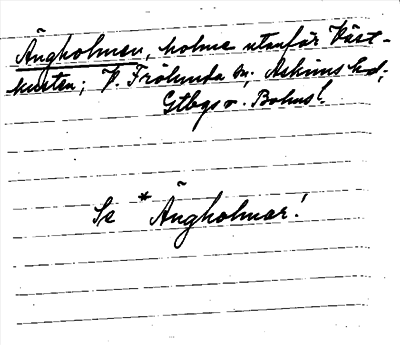 Ängholmen, holme utanför Väst-
kusten; V. Frölunda sn; Askims hd;
Gtbgs o. Bohusl.
Se * Ängholmar!